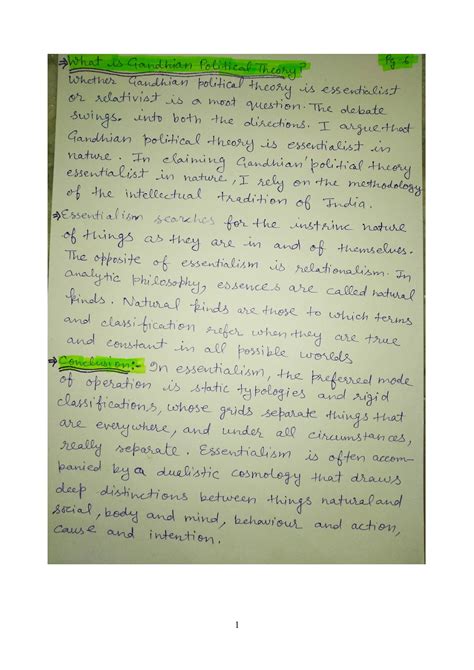 →What is Gandhian Political Theory? Pg-6
Whether Gandhian political theory is essentialist
or relativist is a moot question. The debate
swings. into both the directions. I argue that
Gandhian political theory is essentialist in
nature. In claiming Gandhian political theory
essentialist in nature, I rely on the methodology
of the intellectual tradition of India.
⇒Essentialism searches for the instrinc nature
of things as they are in and of themselves.
The opposite of essentialism is relationalism. In
analytic philosophy, essences are called natural
kinds. Natural kinds are those to which terms
and classification refer when they are true
and constant in all possible worlds
⇒Conclusion:- In essentialism, the preferred mode
of operation is static typologies and rigid
classifications, whose grids separate things that
are everywhere, and under all circumstances,
really separate. Essentialism is often accom-
panied by a dualistic cosmology that draws
deep distinctions between things natural and
social, body and mind, behaviour and action,
cause and intention.
1